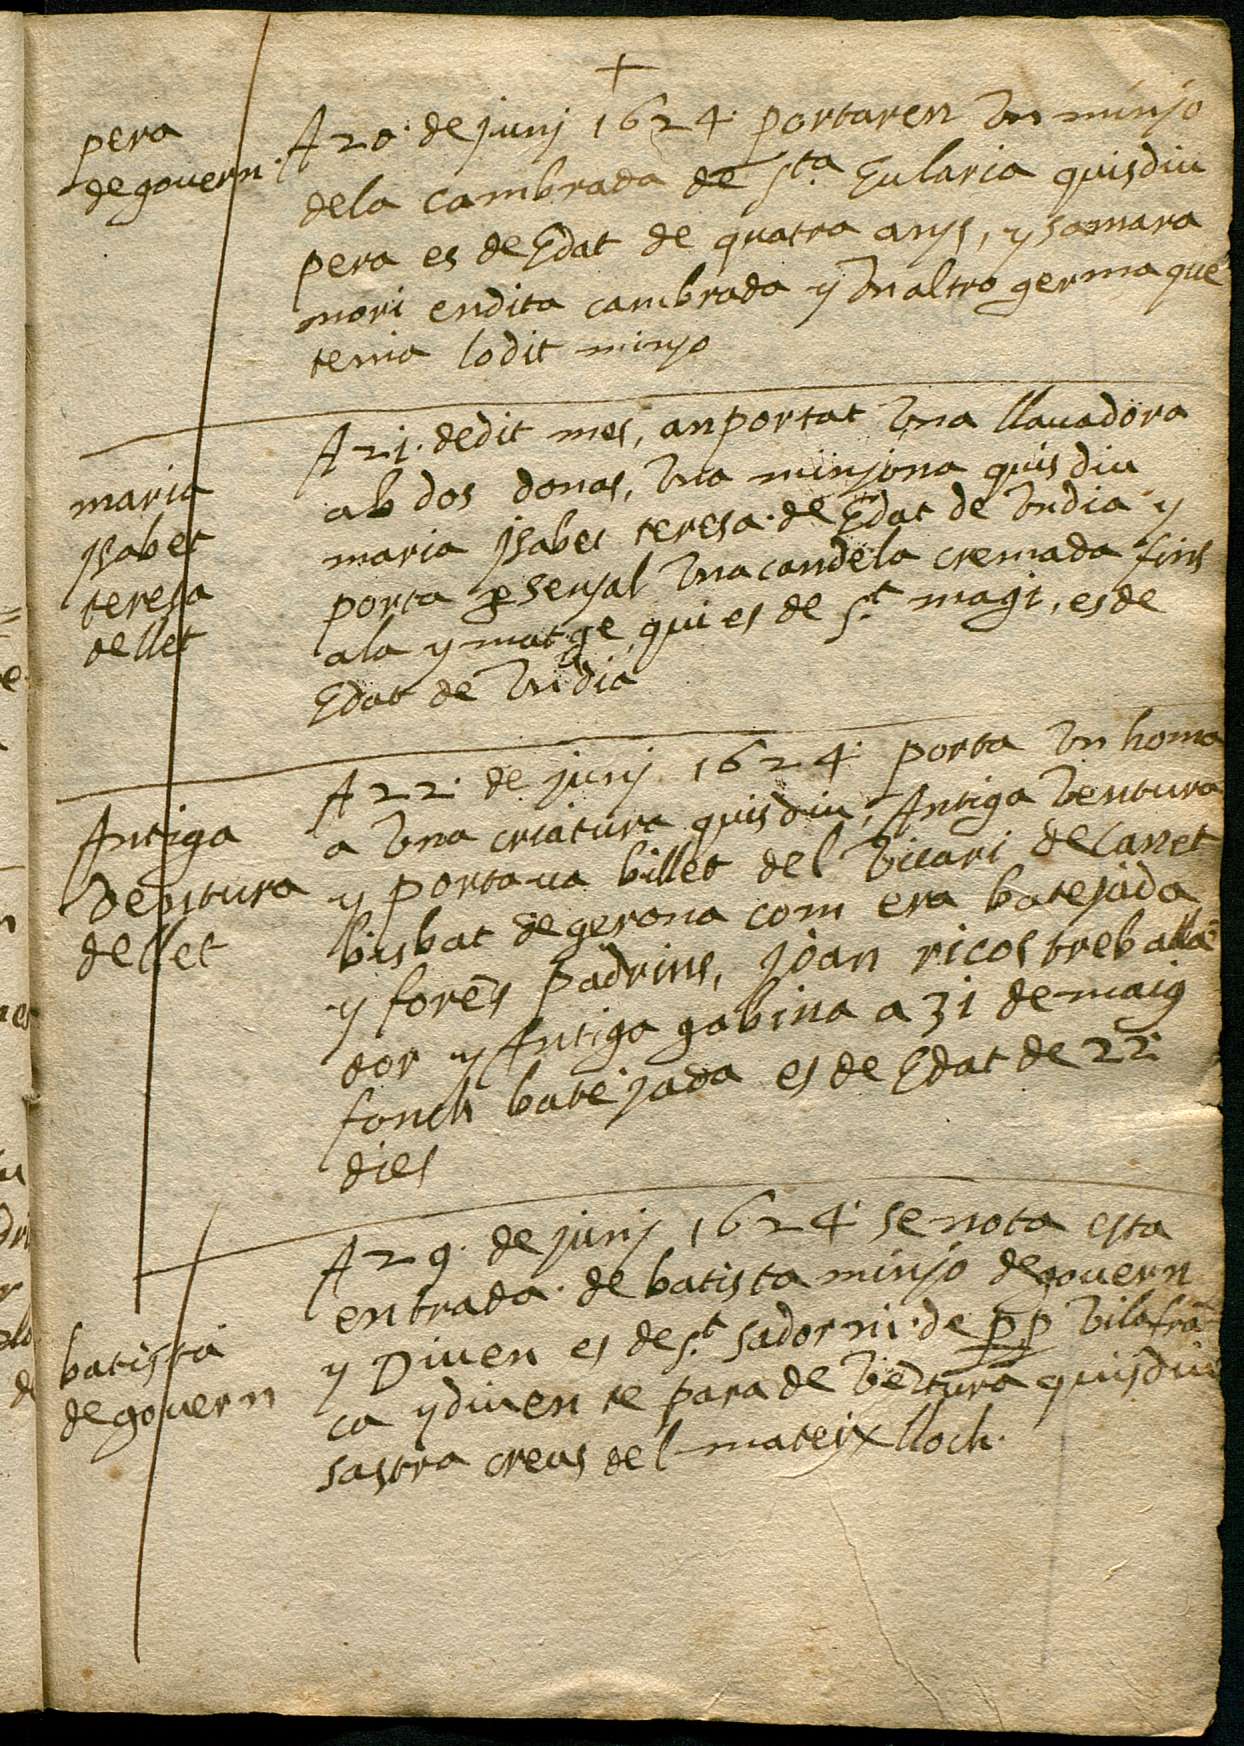 +
pera
de govern
A 20 de juni 1624 portaren un minyo
dela cambrada de Sta Eularia quis diu
pera es de Edat de quatra anys, y sa mara
mori en dita cambrada y un altro germa que
tenia lo dit minyo
maria
ysabet
teresa
de llet
A 21 de dit mes, an portat una llavadora
ab dos donas, una minyona quis diu
maria ysabet teresa de Edat de un dia y
porta p senyal una candela cremada fins
ala y matge qui es de St magi, es de
Edat de un dia
Antiga
Ventura
de llet
A 22 de juni 1624 porta un homa
a una criatura quis diu, Antiga Ventura
y portava billet del Vicari de Canet
bisbat de gerona com era batejada
y foren padrins, Joan ricos treballa
dor y Antiga gabina a 31 de maig
fonch batejada es de Edat de 22
dies
batista
de govern
A 29 de juni 1624 se nota esta
entrada de batista minyo de govern
y Diuen es de St sadorni de pp Vilafrã
ca y diuen te para de Ventura quis diu
sastra creus del mateix lloch.